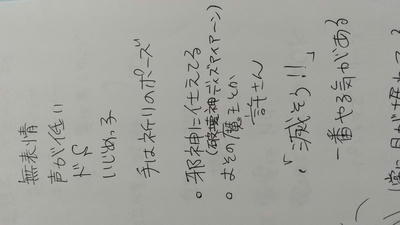 無表情
声が低い
ドS
いじめっ子
手は祈りのポーズ
・邪神に仕えてる
(破壊神
・よその魔王とか
許さん
・「滅そう!!」
一番やる気がある
(常に目が